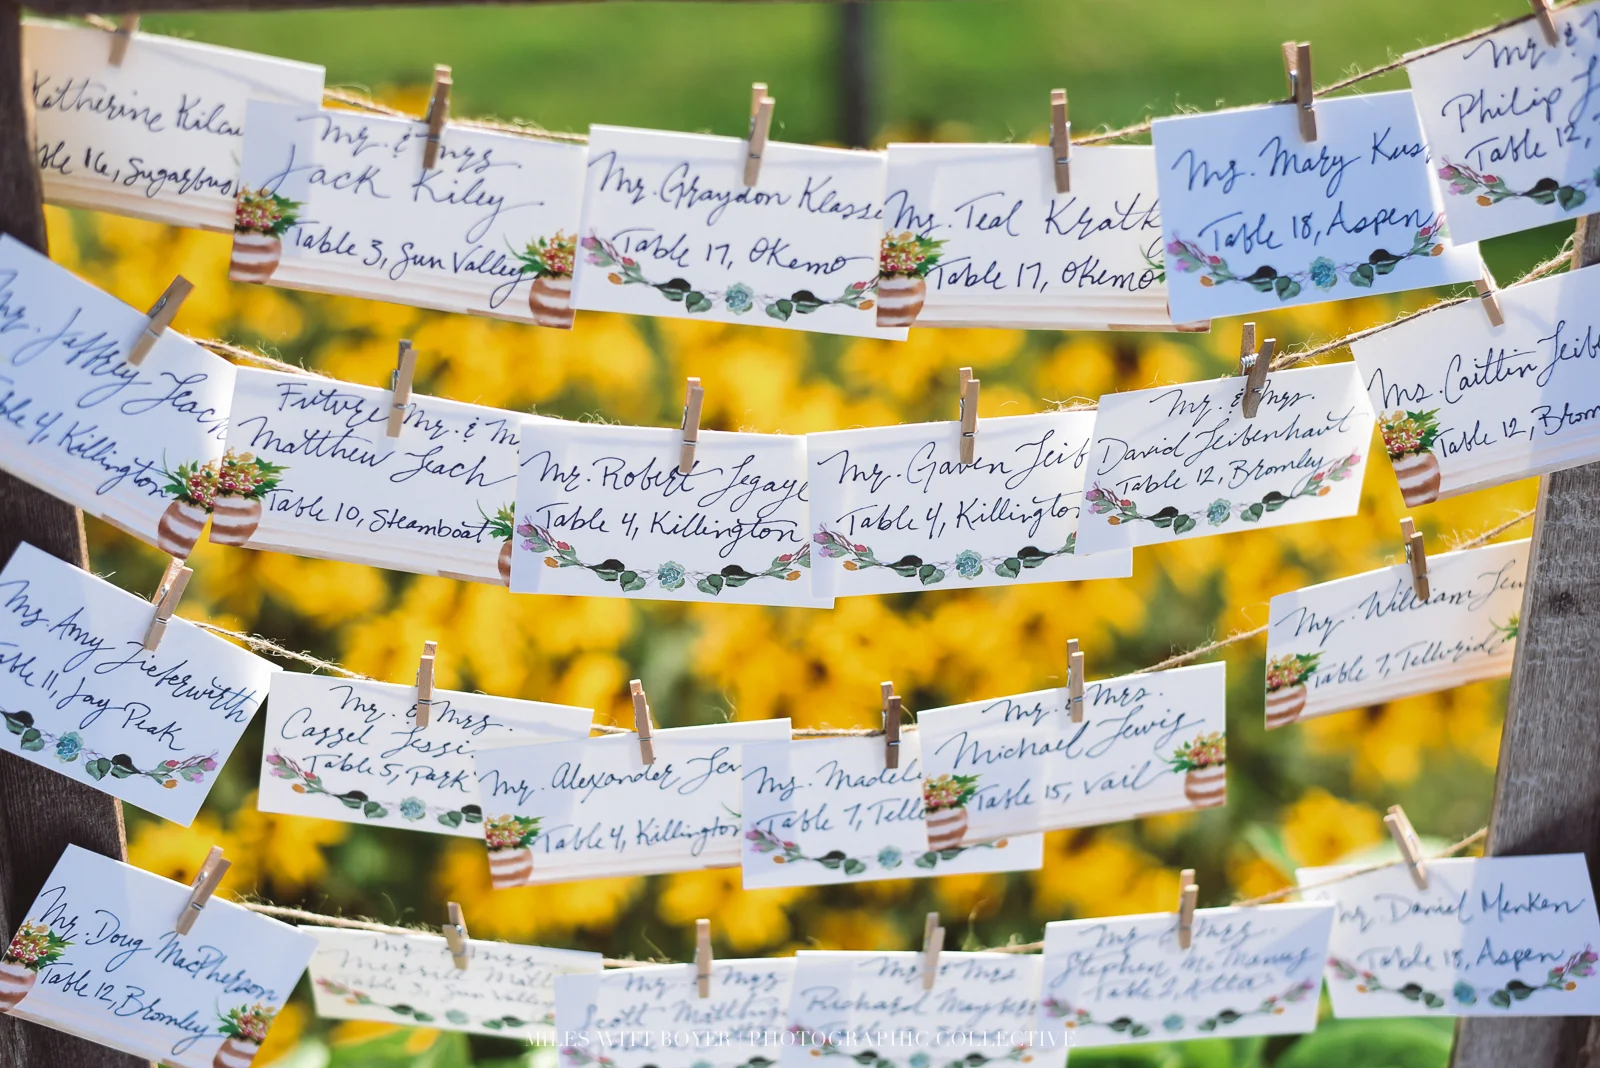 Katherine
16,
Mr. & Mrs.
Jack Kiley
Table 3, Sun Valley
Mr. Graydon Klasse
Table 17, Okemo
Teal Kratk
Table 17, Okemo
Ms. Mary Kus
Table 18, Aspen
Mr. &
Philip
Table 12,
Mr. Jeffrey Leach
4, Killington
Future Mr. & M
Matthew Leach
Table 10, Steamboat
Mr. Robert Legaye
Table 4, Killington
Mr. Gaven Leib
Table 4, Killingto
Mr. & Mrs.
David Leibenhaut
Table 12, Bromley
Ms. Caitlin Leibe
Table 12, Brom
Ms. Amy Lieferwirth
Table 11, Jay Peak
Mr. & Mrs.
Cassel Lessi
Table 5, Park
Mr. Alexander Lev
Table 4, Killington
Ms. Madele
Table 7, Tellu
Mr. & Mrs.
Michael Lewis
Table 15, Vail
Mr. William Lew
Table 7, Tellurid
Mr. Doug MacPherson
Table 12, Bromley
Mr. & Mrs.
Merrill
Table 3, Sun Valley
Mr. & Mrs.
Scott Matthy
Mr. & Mrs.
Richard
Mr. & Mrs.
Stephen McManus
Table 2, Alta
Mr. Daniel Menken
Table 18, Aspen
MILES WITT BOYER | PHOTOGRAPHIC COLLECTIVE